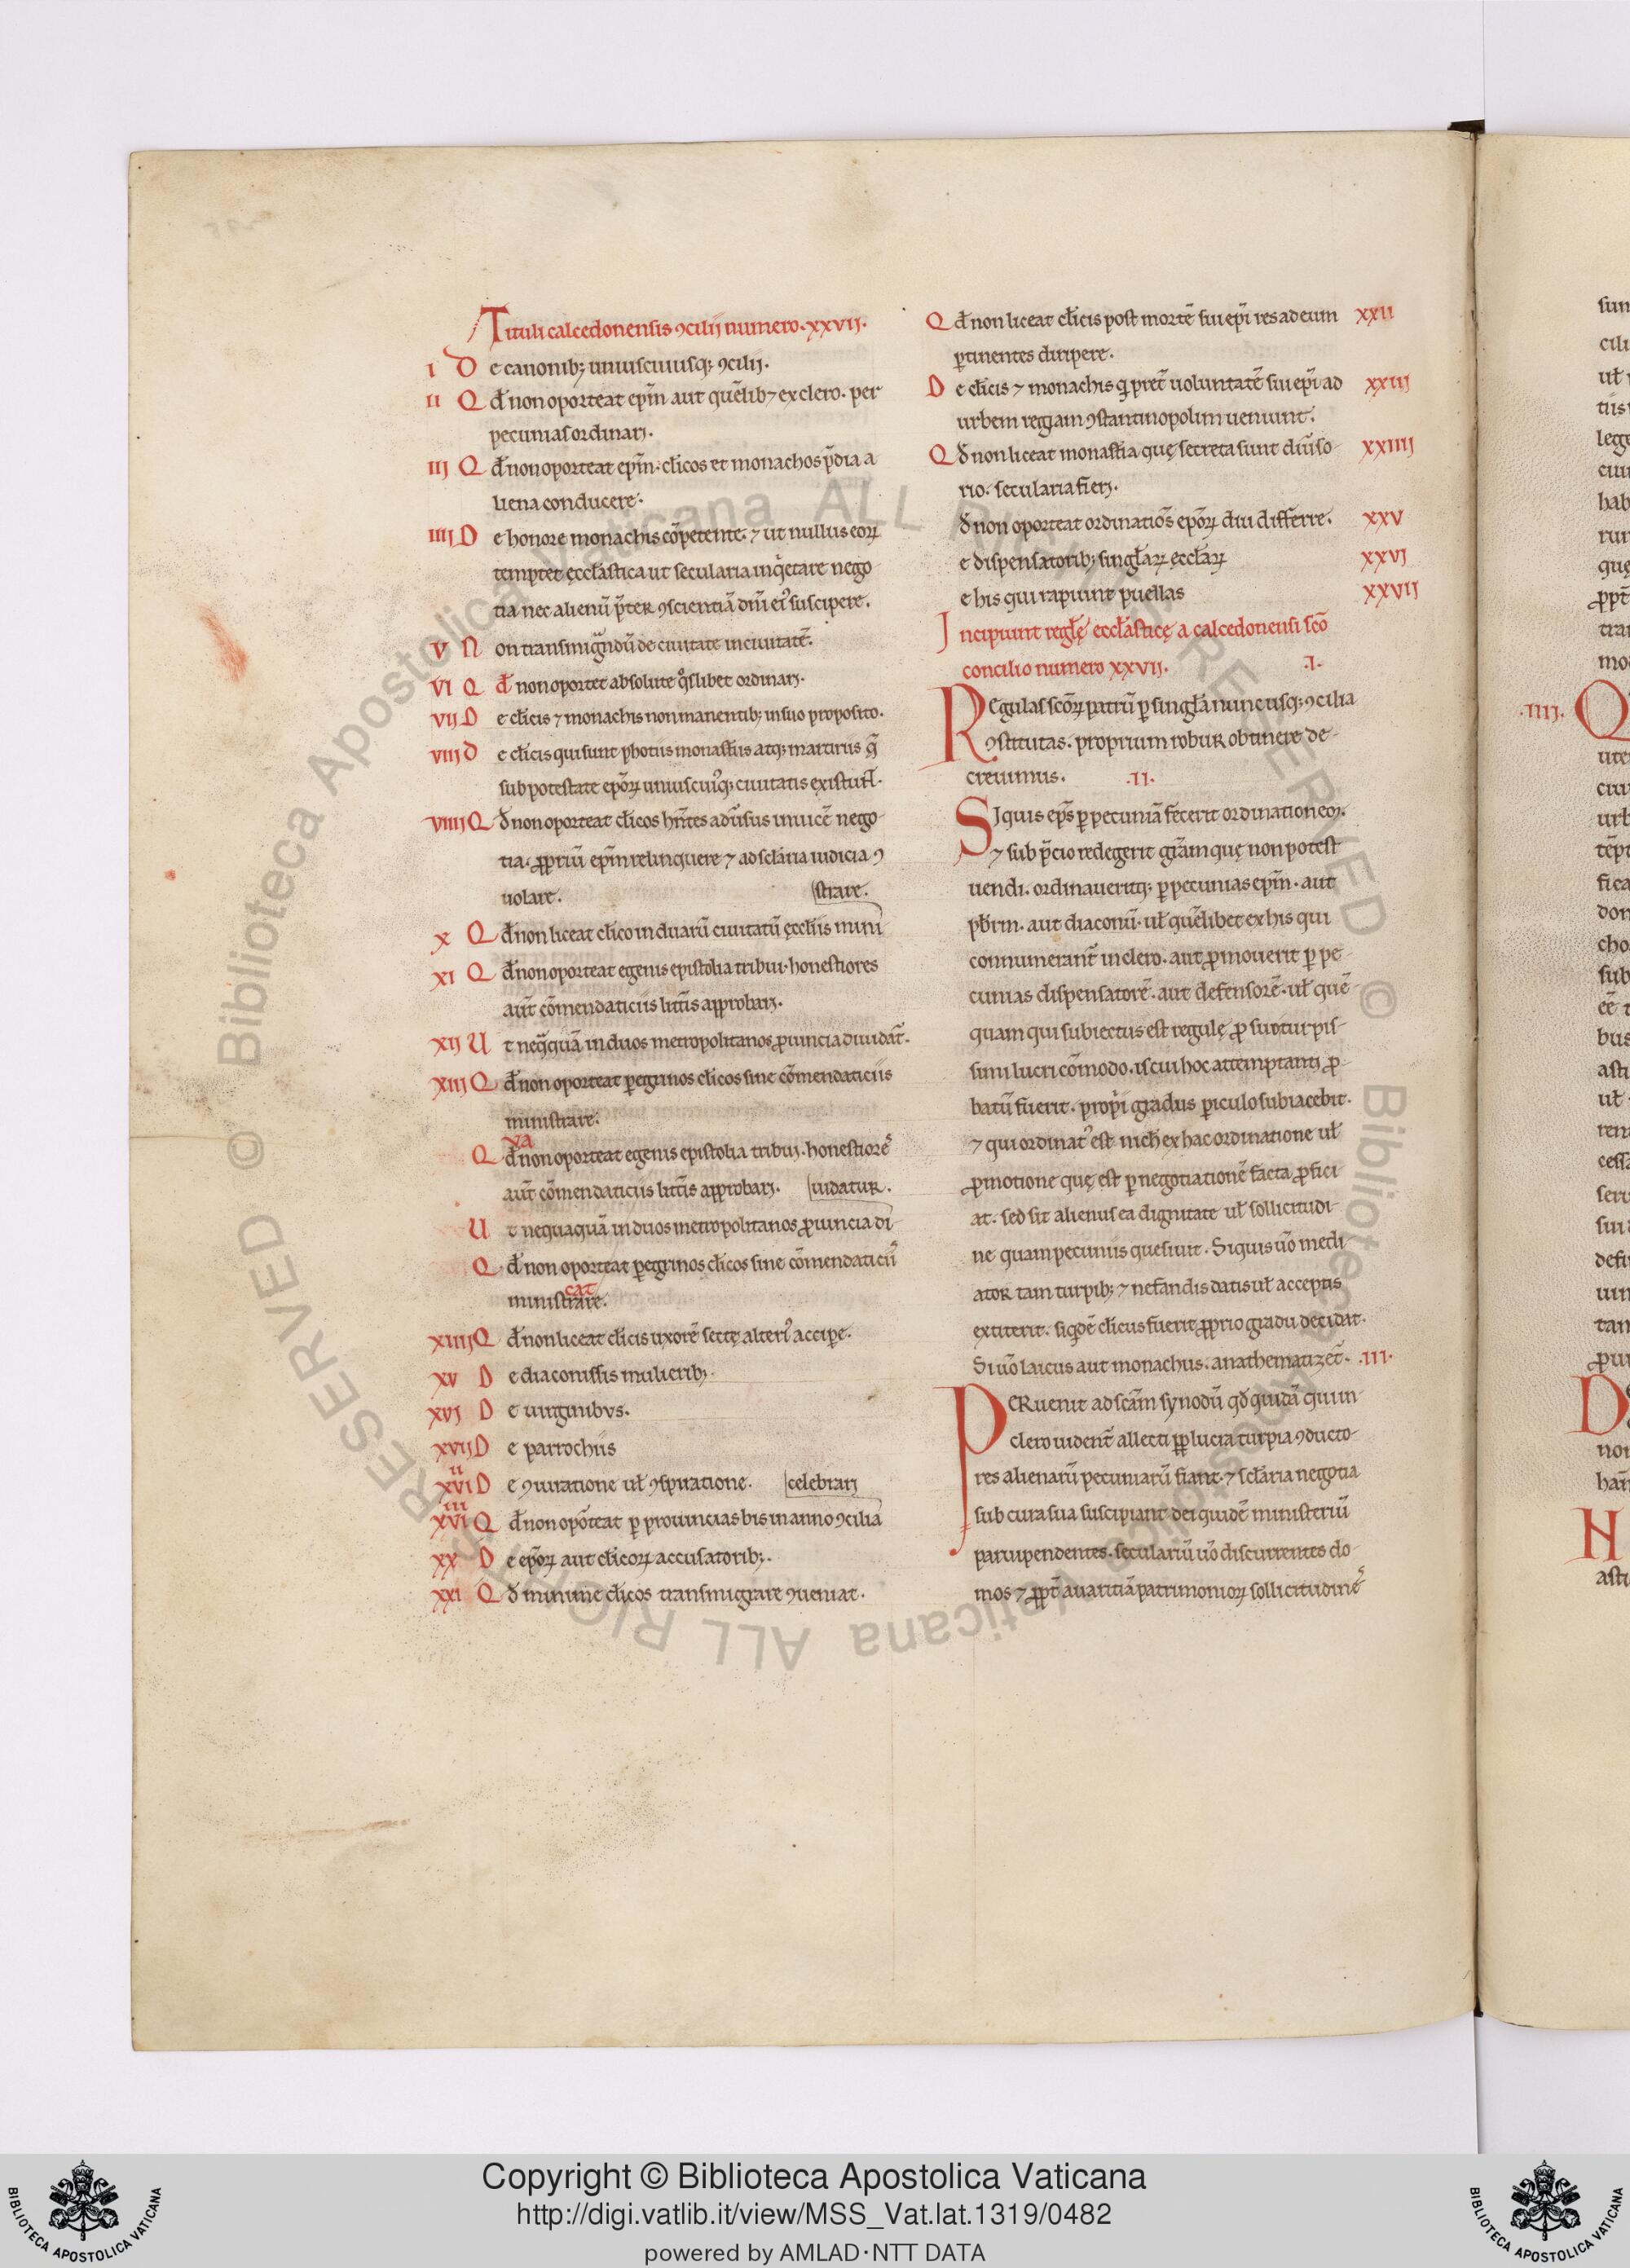 Tituli calcedonensis ꝯcilij numero. xxvij.
I De canonib; uniuscuiusq; ꝯcilij.
II Qđ non oporteat ep̄m aut quēlib; ex clero. per
pecunias ordinarj.
III Qđ non oporteat ep̄m. cl̄icos et monachos p̄dia a
liena conducere.
IIIJ De honore monachis cōpetente. ⁊ ut nullus eoꝝ
temptet ęccl̄astica ut secularia inq̇etare nego
tia nec alienū p̄ter ꝯscientiā dn̄i ei᾽ suscipere.
V Non transmig̃ndū de ciuitate in ciuitatē.
VI Qđ non oportet absolute q̊slibet ordinarj.
VIJ De cl̄icis ⁊ monachis non manentib; in suo proposito.
VIIJ De cl̄icis qui sunt p̄hotiis monast̄iis atq; martiriis q̄
sub potestate ep̄oꝝ uniuscui᾽q; ciuitatis existun̄t.
VIIIJ Qđ non oporteat cl̄icos hn̄tes adūsus inuicē nego
tia. ꝓpriū ep̄m relinquere ⁊ ad sclāria iudicia ꝯ
uolare. strare.
X Qđ non liceat cl̄ico in duarū ciuitatū ęccl̄iis mini
XI Qđ non oporteat egenis epistolia tribui. honestiores
aūt cōmendaticiis litt̄is approbarj.
XIJ Ut neq̄quā in duos metropolitanos ꝓuincia diuidat̄.
XIIJ Qđ non oporteat ꝑegrinos cl̄icos sine cōmendaticiis
ministrare.
va
Qđ non oporteat egenis epistolia tribuj. honestiore᷒
aūt cōmendaticiis litt̄is approbarj. uidatur.
Ut nequaquā in duos metropolitanos ꝓuincia di
Qđ non oporteat ꝑegrinos cl̄icos sine cōmendaticii᷒
cat
ministrare.
XIIIJ Qđ non liceat cl̄icis uxorē sectę alteri᾽ accipe.
XV De diaconissis mulierib;.
XVJ De uirginibus.
XVIJ De parrochiis
II
XVI De ꝯiuratione ul̄ ꝯspiratione. celebrarj
III
XVI Qđ non opōteat ꝑ prouincias bis in anno ꝯcilia
XX De ep̄oꝝ aut cl̄icoꝝ accusatorib;.
XXI Qđ minime cl̄icos transmigrare ꝯueniat.
Qđ non liceat cl̄icis post mortē sui ep̄i res ad eum XXII
ꝑtinentes diripere.
De cl̄icis ⁊ monachis q̇ pret̄ uoluntatē sui ep̄i ad XXIIJ
urbem regiam ꝯstantinopolim ueniunt.
Qđ non liceat monast̄ia quę secreta sunt diūso XXIIIJ
rio. secularia fierj.
đ non oporteat ordinatiōs ep̄oꝝ diu differre. XXV
e dispensatorib; singl̄aꝝ ęccl̄aꝝ XXVJ
e his qui rapiunt puellas XXVIJ
Incipiunt regl̄ę eccl̄asticę a calcedonensi scō
concilio numero XXVIJ. .I.
Regulas scōꝝ patrū ꝑ singl̄a nunc usq; ꝯcilia
ꝯstitutas. proprium robur obtinere de
creuimus. .II.
Siquis ep̄s ꝑ pecuniā fecerit ordinationeȝ.
⁊ sub p̄cio redegerit gr̄am quę non potest
uendi. ordinaueritq; ꝑ pecunias ep̄m. aut
pb̄rm. aut diaconū. ul̄ quēlibet ex his qui
connumerant̄ in clero. aut ꝓmouerit ꝑ pe
cunias dispensatorē. aut defensorē. ul̄ quē
quam qui subiectus est regulę ꝓ sui turpis
simi lucri cōmodo. is cui hoc attemptanti ꝓ
batū fuerit. prop̄i gradus ꝑiculo subiacebit.
⁊ qui ordinat᾽ est nich̄ ex hac ordinatione ul̄
ꝓmotione quę est ꝑ negotiationē facta ꝓfici
at. sed sit alienus ea dignitate ul̄ sollicitudi
ne quam pecuniis quesiuit. Siquis ūo medi
ator tam turpib; ⁊ nefandis datis ul̄ acceptis
extiterit. siq̇dē cl̄icus fuerit ꝓprio gradu decidat.
Si ūo laicus aut monachus. anathematizet̄. .III.
Peruenit ad scām synodū qđ quidā qui in
clero uident̄ allecti ꝓp̄ lucra turpia ꝯducto
res alienarū pecuniarū fiant. ⁊ sclāria negotia
sub cura sua suscipiant dei quidē ministeriū
paruipendentes. seculariū ūo discurrentes do
mos ⁊ ꝓpt̄ auaritiā patrimonioꝝ sollicitudine᷒
.IIIJ. Q
D
H
Copyright © Biblioteca Apostolica Vaticana
http://digi.vatlib.it/view/MSS_Vat.lat.1319/0482
powered by AMLAD·NTT DATA
BIBLIOTECA APOSTOLICA VATICANA
BIBLIOTECA APOSTOLICA VATICANA
© Biblioteca Apostolica Vaticana ALL RIGHTS RESERVED © Biblioteca Apostolica Vaticana ALL RIGHTS RESERVED